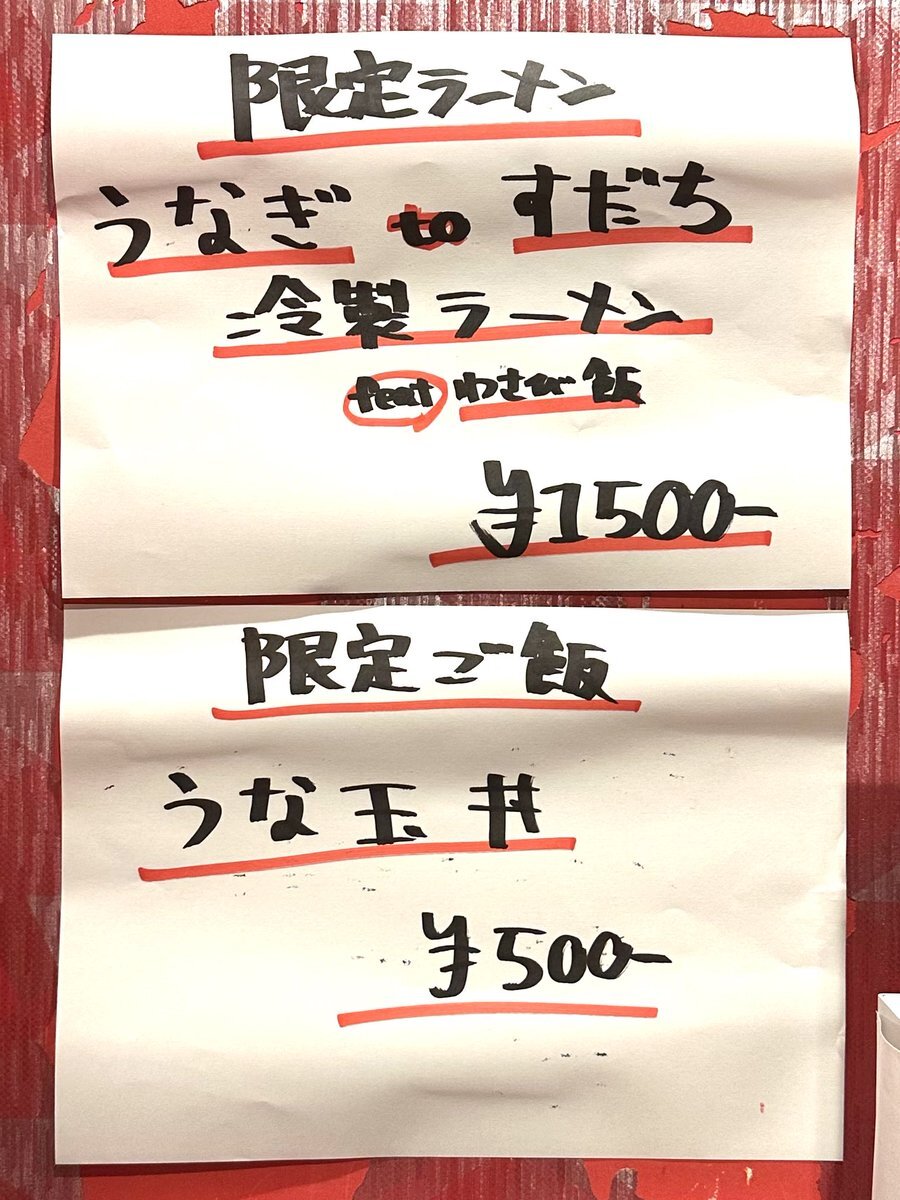 限定ラーメン
うなぎ to すだち
冷製ラーメン
feat わさび飯
¥1500-
限定ご飯
うな玉丼
¥500-